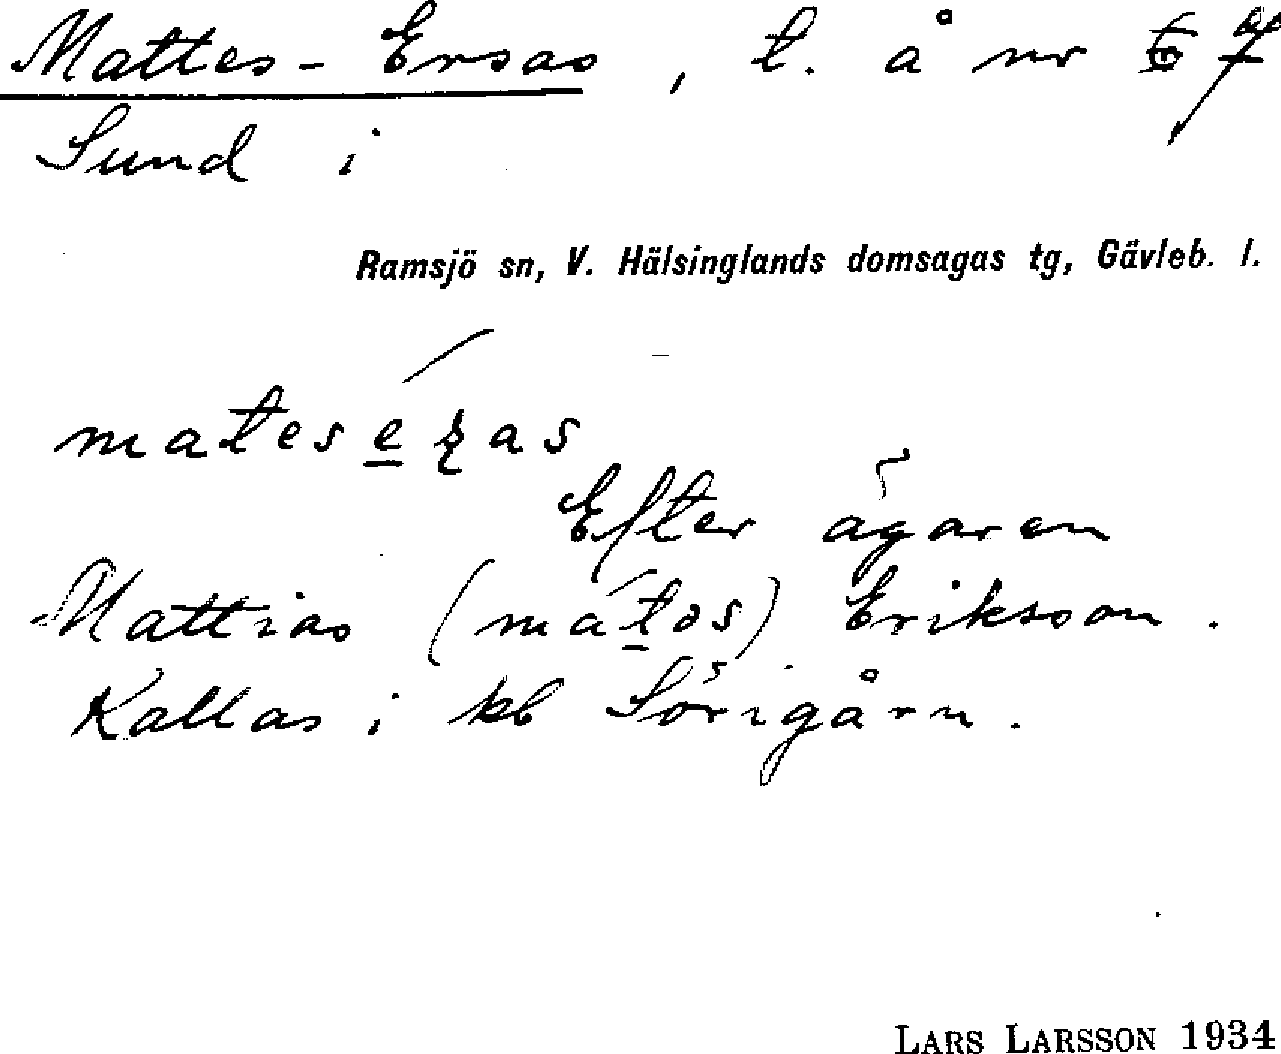 Mattes-Ersas, t. å nr 7
Sund i
Ramsjö sn, V. Hälsinglands domsagas tg, Gävleb. l.
Efter ägaren
Mattias (mátǝs) Eriksson.
Kallas i kb Sörigårn.
LARS LARSSON 1934